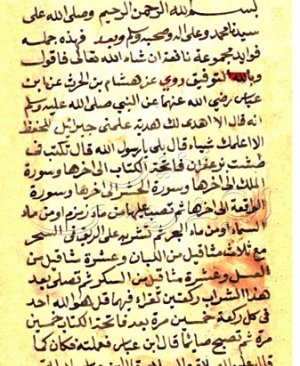 بسم الله الرحمن الرحيم وصلى الله على
سيدنا محمد وعلى اله وصحبه وسلم وبعد فهذه جمله
فوايد مجموعة نافعة ان شاء الله تعالى فاقول
وبالله التوفيق روي عن هشام بن الحرث عن ابن
عباس رضي الله عنهما عن النبي صلى الله عليه وسلم
انه قال الا اهدى لك هدية علمني جبرائيل للحفظ
الا اعلمك شيا قال بلى يا رسول الله قال تكتب في
طشت بزعفران فاتحة الكتاب الى اخرها وسورة
الملك الى اخرها وسورة الحشر الى اخرها وسورة
الواقعة الى اخرها ثم تصب عليها من ماء زمزم او من ماء
السماء او من ماء البحر ثم تشربه على الريق في السحر
مع ثلاث مثاقيل من اللبان وعشرة مثاقيل من
العسل وعشرة مثاقيل من السكر ثم تصلى بعد
هذا الشراب ركعتين تقراء فيها قل هو الله احد
في كل ركعة خمسين مرة بعد فاتحة الكتاب خمسين
مرة ثم تصبح صائما قال ابن عباس ففعلته فكان كما